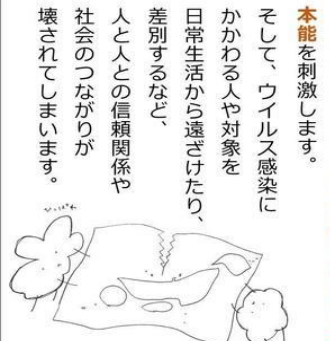 本能を刺激します。
そして、ウイルス感染に
かかわる人や対象を
日常生活から遠ざけたり、
差別するなど、
人と人との信頼関係や
社会のつながりが
壊されてしまいます。